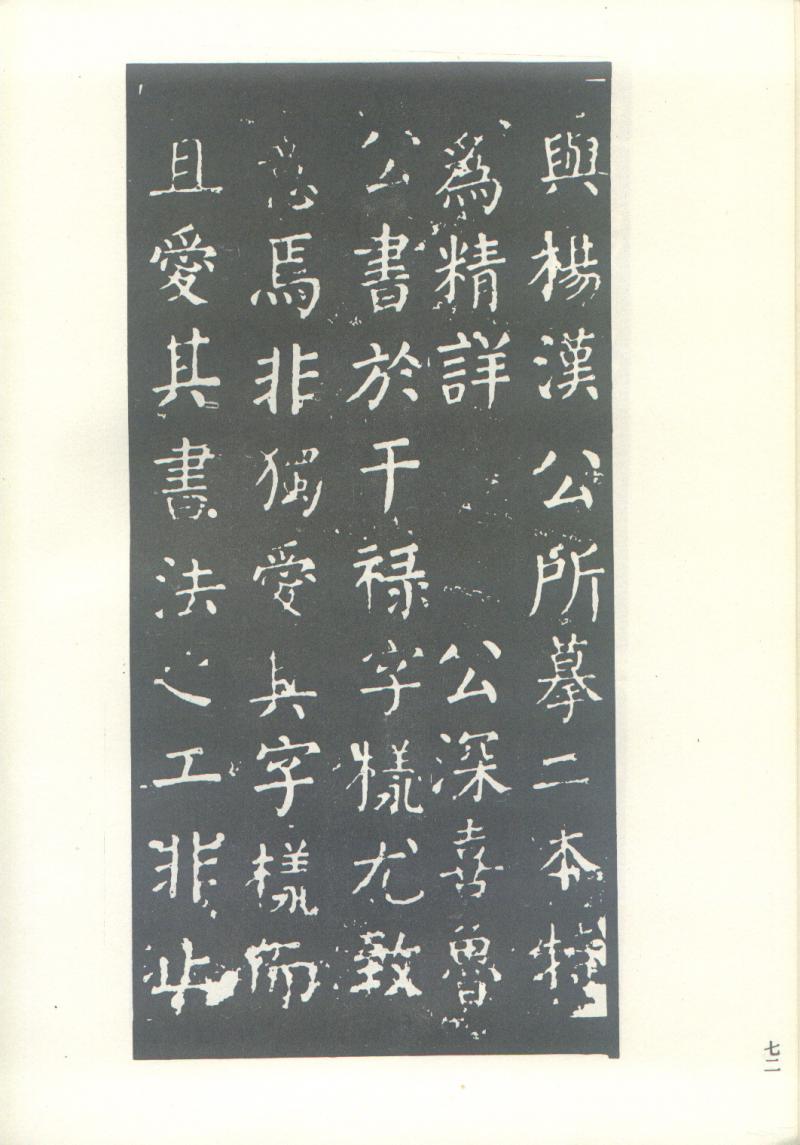 與楊漢公所摹二本特
為精詳　公深喜魯
公書於干禄字樣尤致
意焉非獨愛其字樣而
且愛其書法之工非止
七二